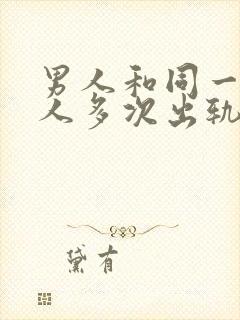 男人和同一
人多次出轨
黛有